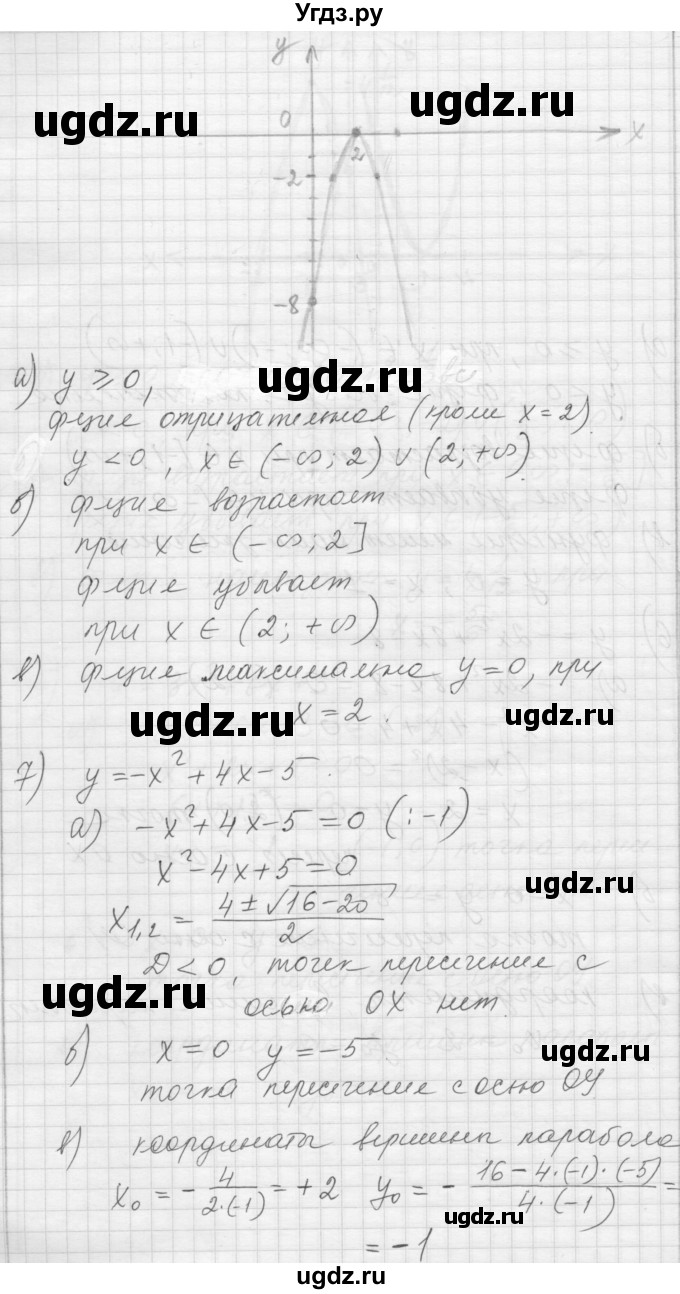 Угдз.ру
y
ugdz.ru
ugdz.ru
0
x
2
-2
-8
ugdz.ru
а) y ⩾ 0,
ф-ция отрицательная (кроме x = 2).
y < 0, x ∈ (-∞; 2) ∪ (2; +∞)
б) ф-ция возрастает
при x ∈ (-∞; 2]
ф-ция убывает
при x ∈ (2; +∞)
в) ф-ция максимальна y = 0, при
x = 2.
ugdz.ru
ugdz.ru
7) y = -x² + 4x - 5.
а) -x² + 4x - 5 = 0 (: -1)
x² - 4x + 5 = 0
ugdz.ru
x₁,₂ = (4 ± √(16 - 20)) / 2
D < 0, точек пересечение с
ugdz.ru
осью OX нет.
б) x = 0 y = -5
ugdz.ru
точка пересечение с осью OY
в) координаты вершины парабола
x₀ = - 4 / (2·(-1)) = +2 y₀ = - (16 - 4·(-1)·(-5)) / (4·(-1)) =
ugdz.ru
= -1
ugdz.ru